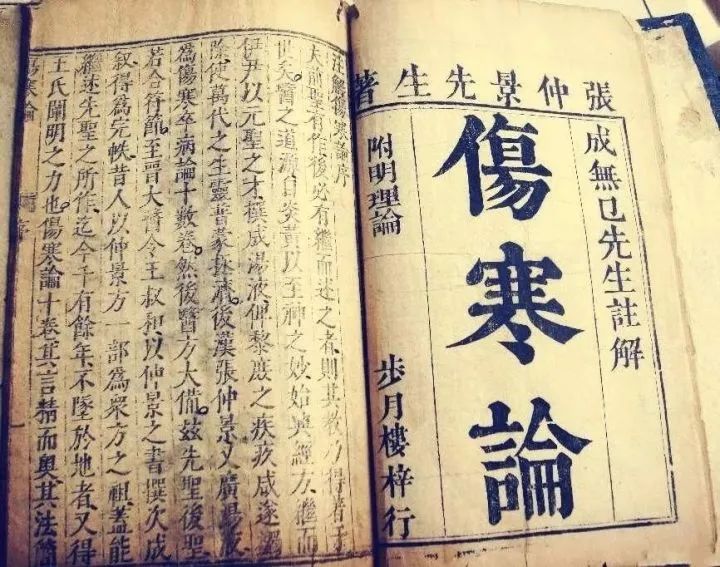 張仲景先生著
成無已先生註解
傷寒論
附明理論
步月樓梓行
注解傷寒論序
夫前聖有作後必有繼而述之者則其教乃得著于
世矣醫之道源自炎黃以至神之妙始興經方繼而
伊尹以元聖之才撰成湯液俾黎庶之疾疚咸遂蠲
除使萬代之生靈普蒙拯濟後漢張仲景又廣湯液
為傷寒卒病論十數卷然後醫方大備茲先聖後聖
若合符節至晉大醫令王叔和以仲景之書撰次成
敘得為完帙昔人以仲景方一部為衆方之祖蓋能
繼述先聖之所作迄今千有餘年不墜於地者又得
王氏闡明之力也傷寒論十卷其言精而奧其法簡
傷寒論